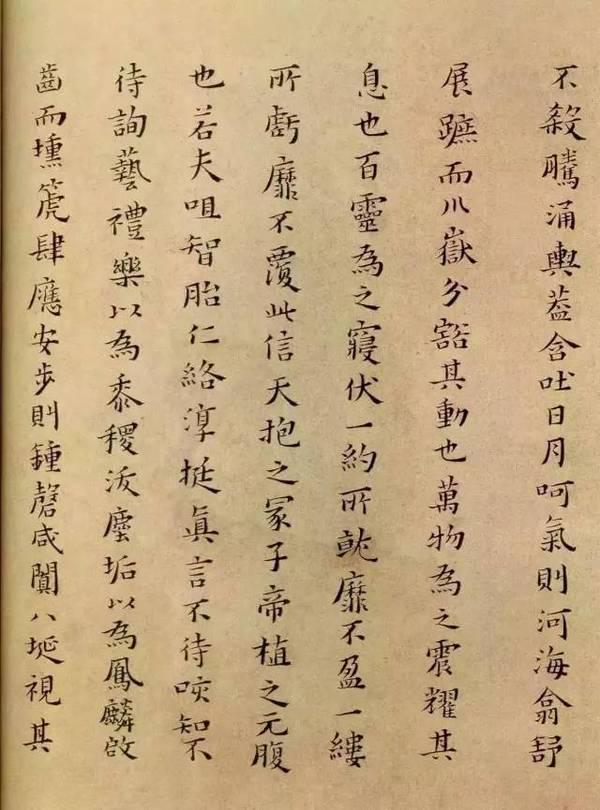 不殺騰涌輿蓋含吐日月呵氣則河海翕舒
展蹠而川嶽分豁其動也萬物為之震耀其
息也百靈為之寢伏一約所就靡不盈一縷
所虧靡不覆此信天抱之冢子帝植之元腹
也若夫咀智胎仁絡淳挺眞言不待咳知不
待詢藝禮樂以為黍稷汝塵垢以為鳳麟啟
齒而壎箎肆應安步則鍾磬咸闐八埏視其